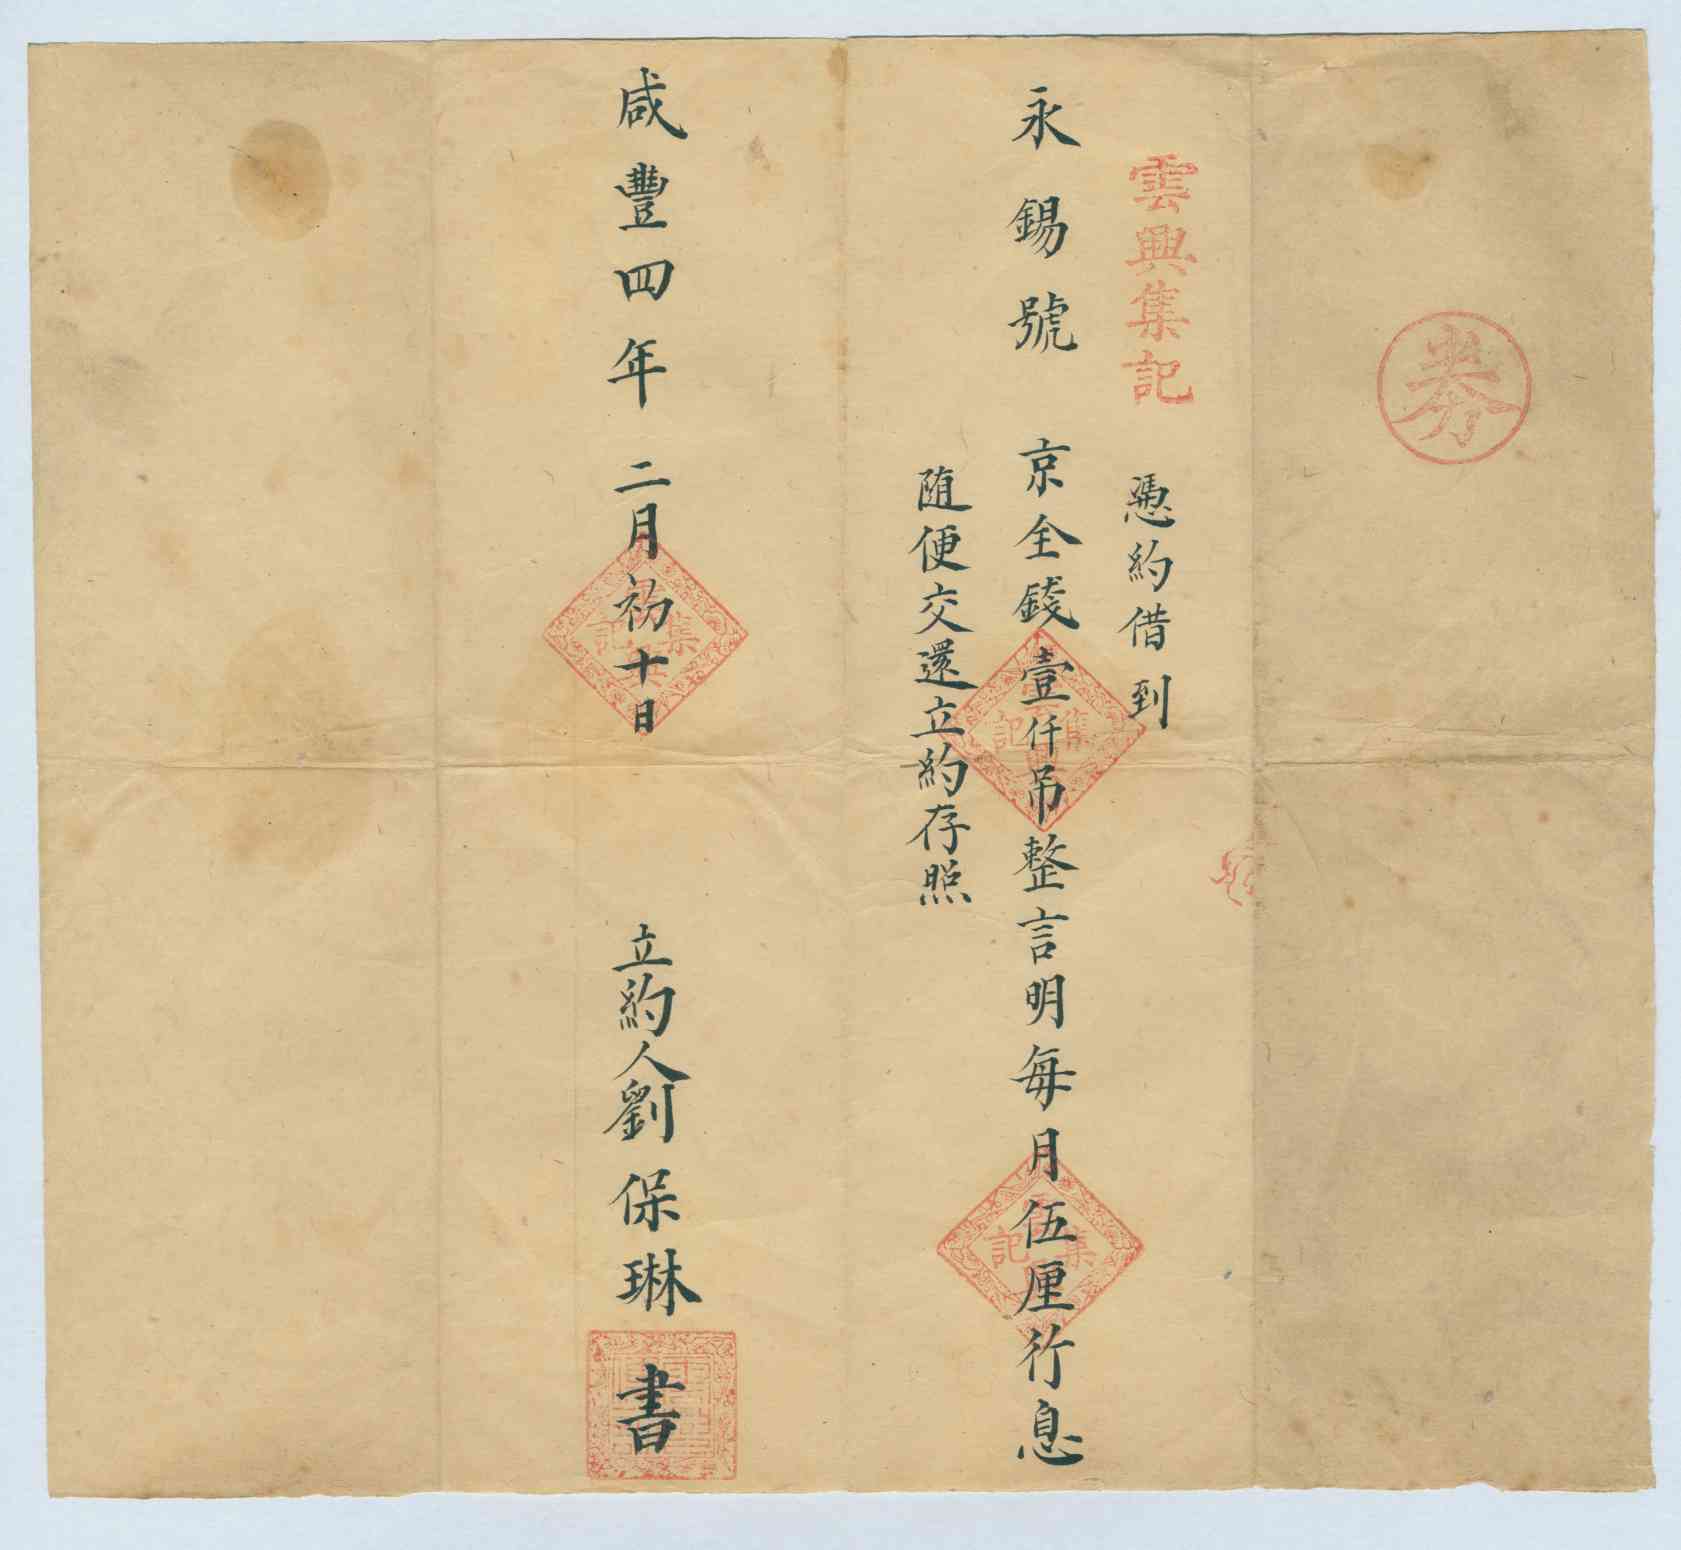 券
雲興集記
憑約借到
永錫號 京全錢壹仟吊整言明每月伍厘行息
随便交還立約存照
咸豐四年 二月初十日 立約人劉保琳 書
集記
集記
集記